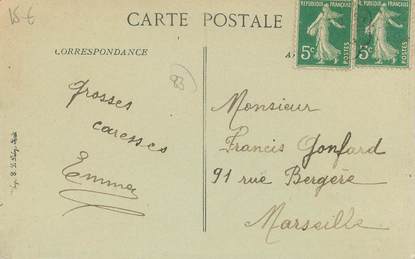 15 €
CARTE POSTALE
RÉPUBLIQUE FRANÇAISE
5c
POSTES
R. PUBLIQUE FRANÇAISE
5c
POSTES
CORRESPONDANCE
83
Grosses
caresses
Emma
Monsieur
Francis Gonfard
91 rue Bergère
Marseille